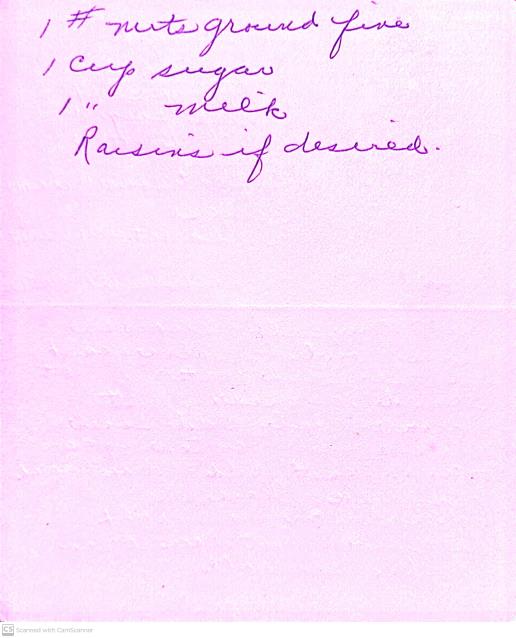 1 # nuts ground fine
1 Cup sugar
1 " milk
Raisins if desired.
CS Scanned with CamScanner